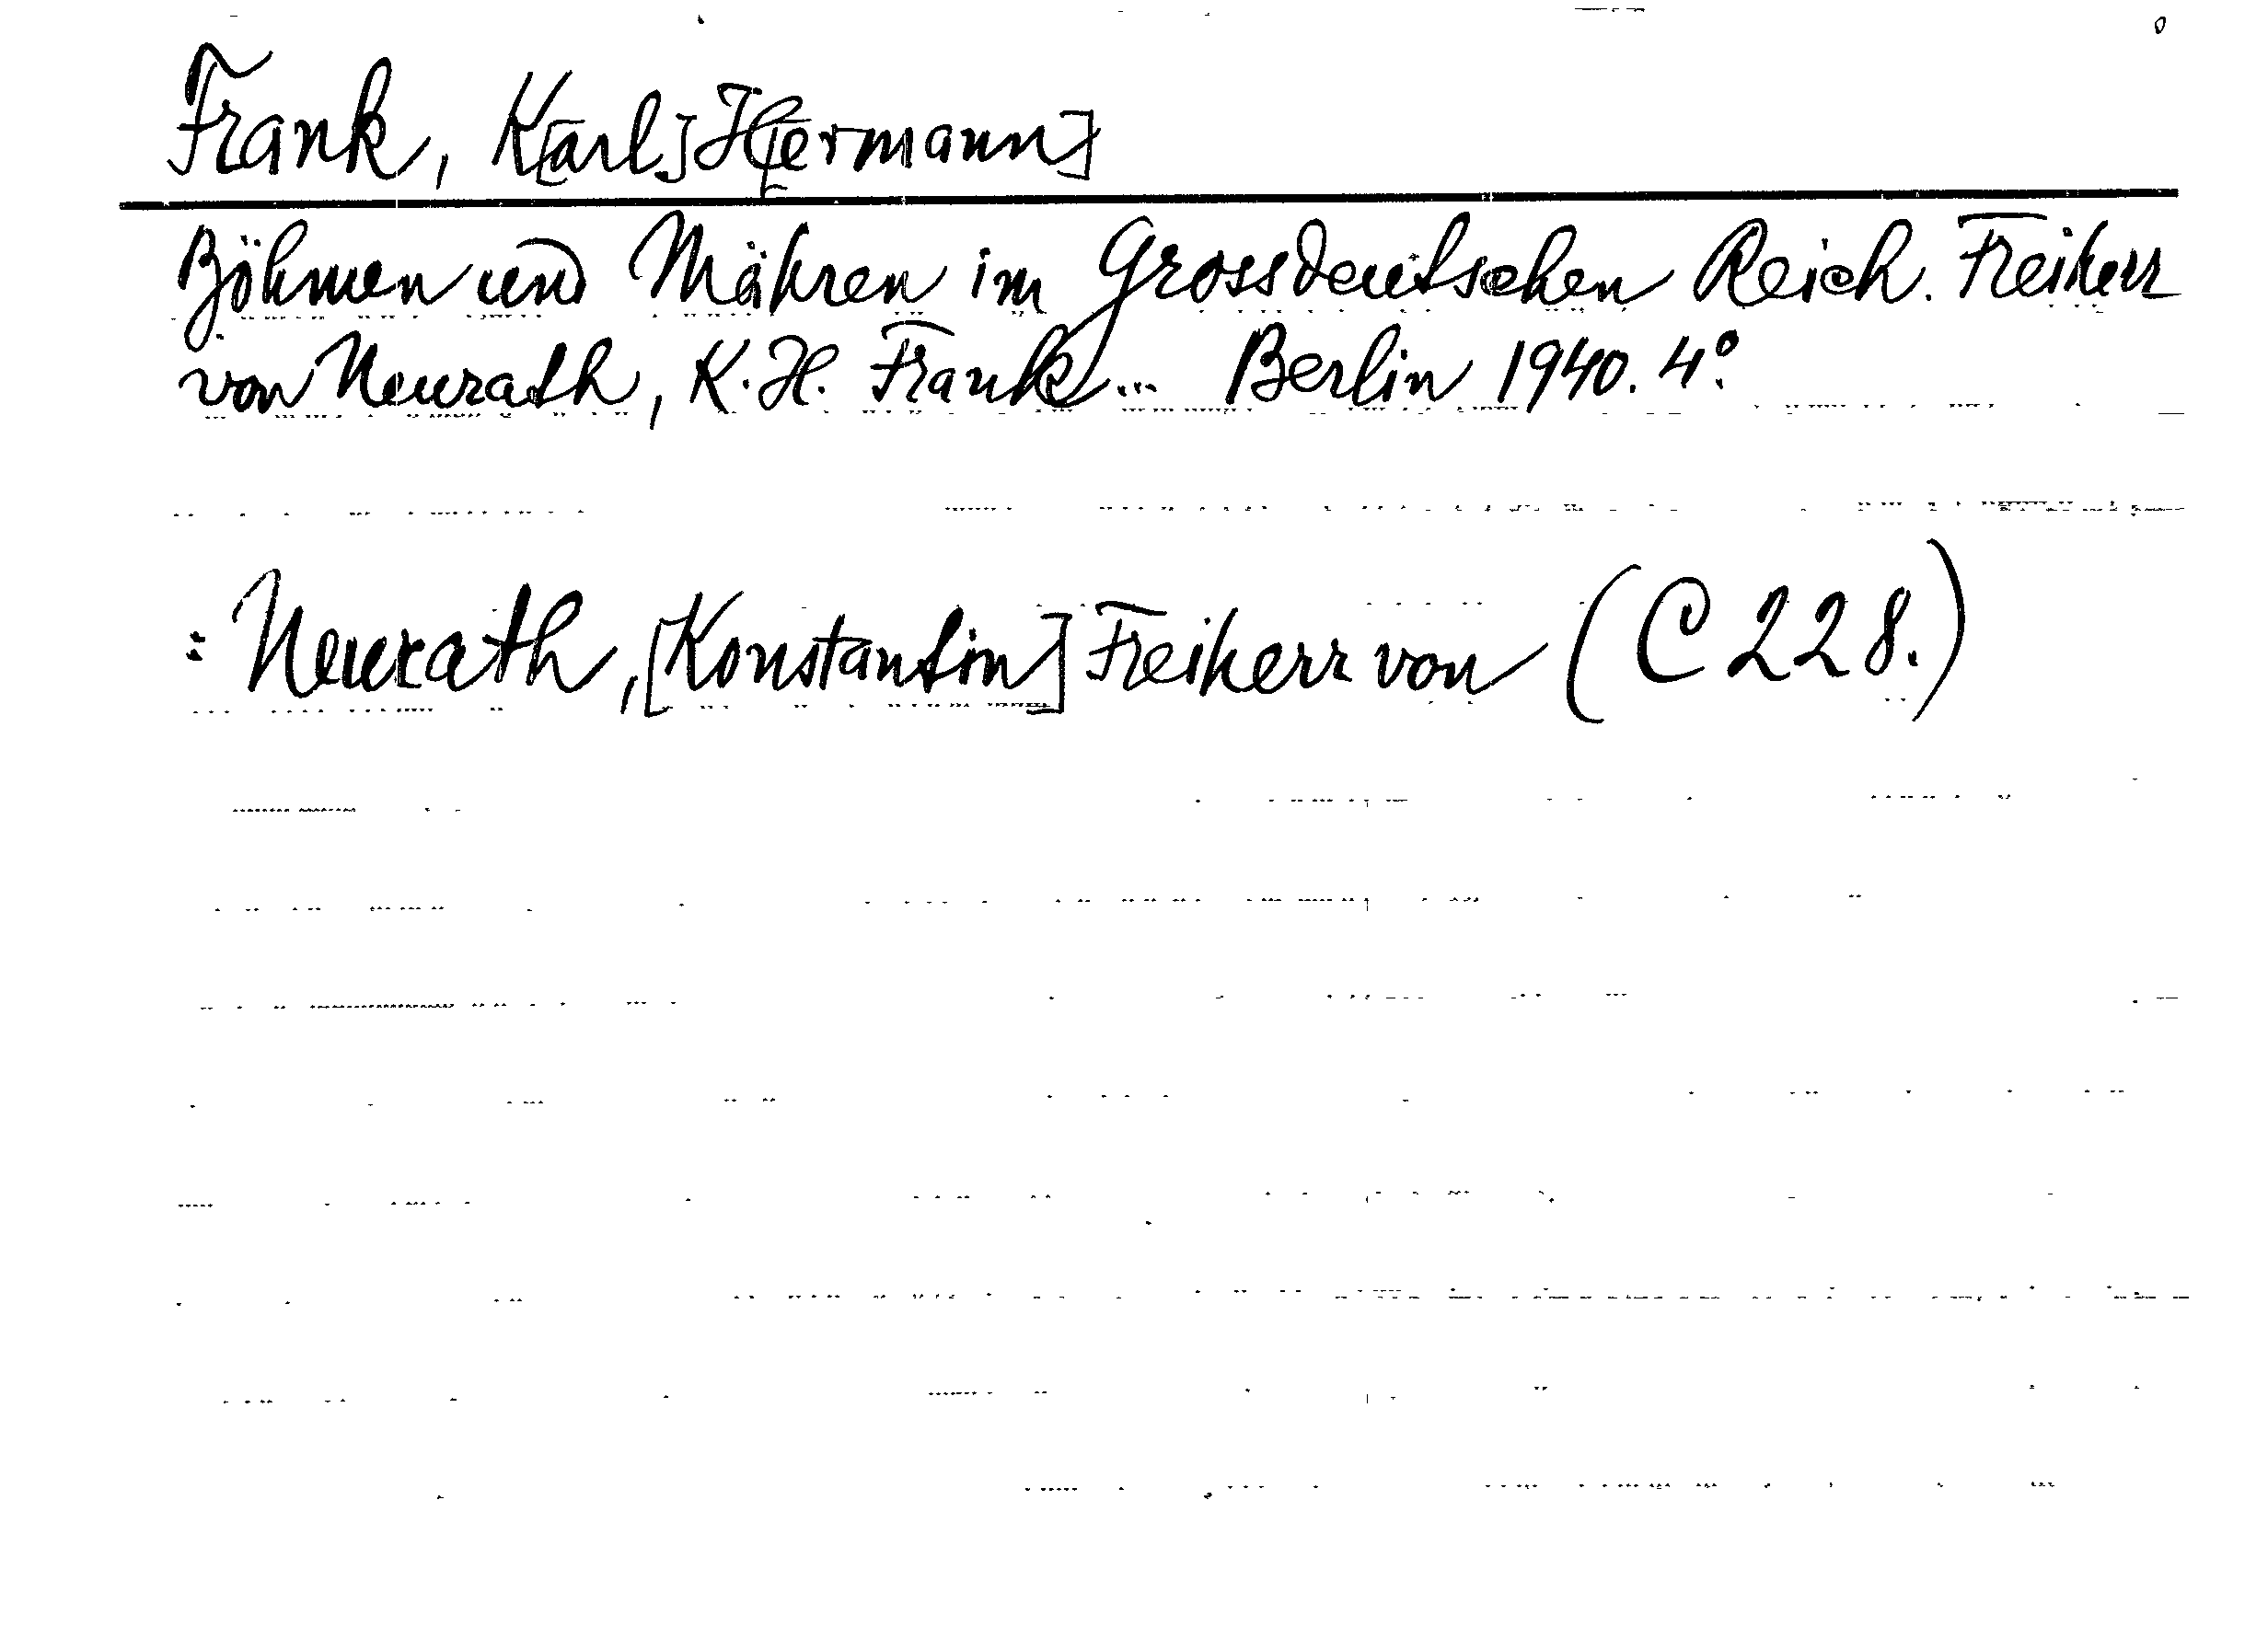 Frank, K[arl] H[ermann]
Böhmen und Mähren im Grossdeutschen Reich. Freiherr
von Neurath, K. H. Frank... Berlin 1940. 4°.
: Neurath, [Konstantin] Freiherr von (C 228.)